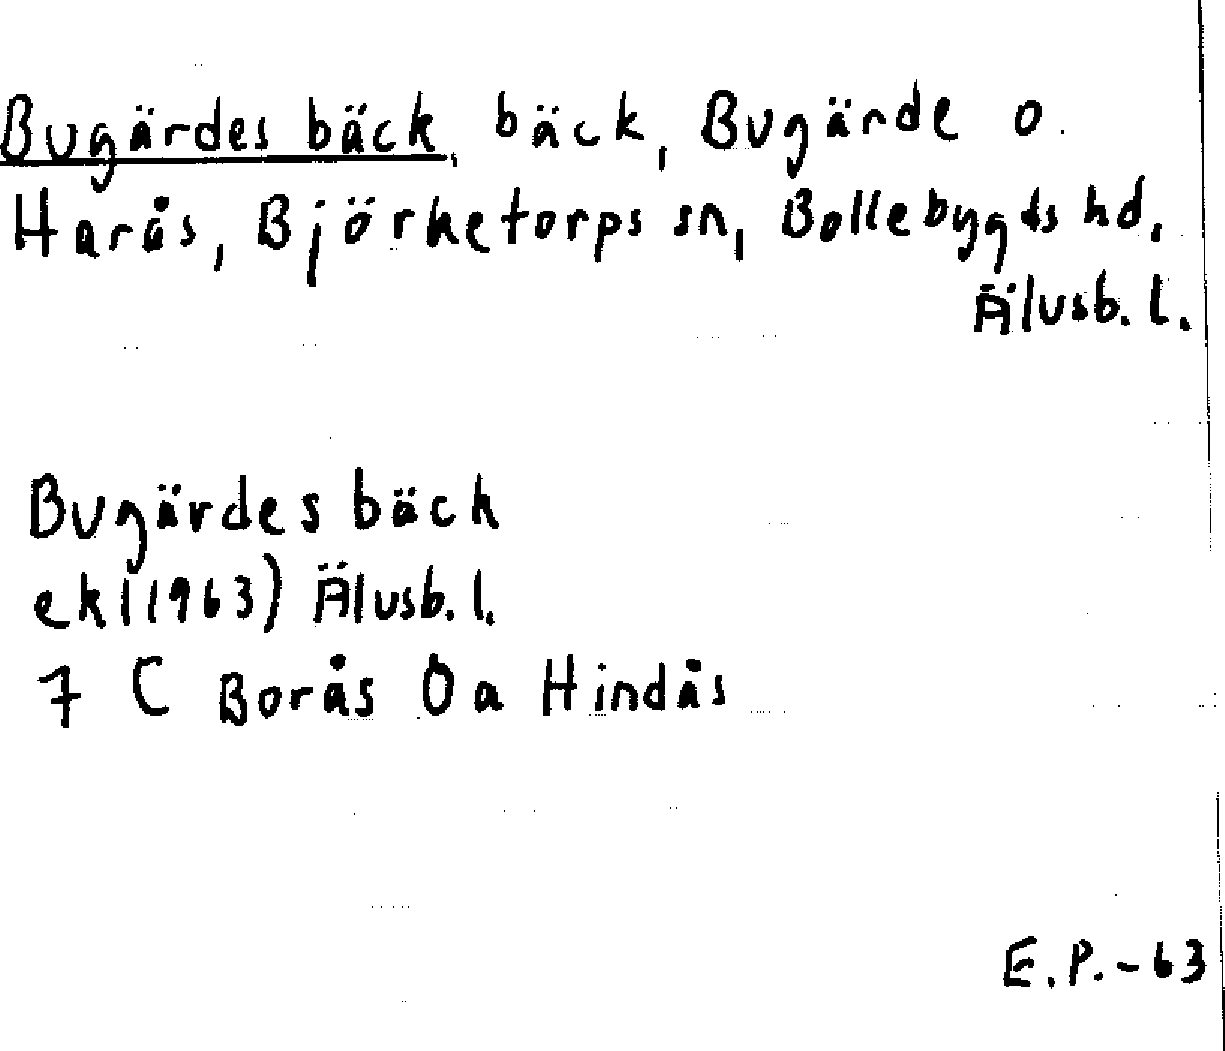 Bugärdes bäck, bäck, Bugärde o.
Harås, Björketorps sn, Bollebygds hd,
Älvsb. l.
Bugärdes bäck
ek (1963) Älvsb. l.
7 C Borås 0a Hindås
E.P.-63